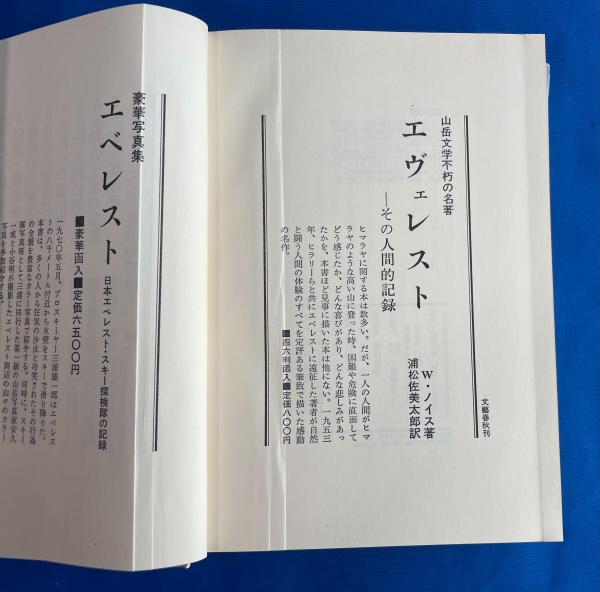 山岳文学不朽の名著
エヴェレスト
―その人間的記録
W・ノイス著
浦松佐美太郎訳
文藝春秋刊
ヒマラヤに関する本は数多い。だが、一人の人間がヒマ
ラヤのような高い山に登った時、困難や危険に直面して
どう感じたか、どんな喜びがあり、どんな悲しみがあっ
たかを、本書ほど見事に描いた本は他にない。一九五三
年、ヒラリーらと共にエベレストに遠征した著者が自然
と闘う人間の体験のすべてを定評ある筆致で描いた感動
の名作。
■四六判函入■定価八〇〇円
豪華写真集
エベレスト
日本エベレスト・スキー探検隊の記録
■豪華函入■定価六五〇〇円
一九七〇年五月、プロスキーヤー三浦雄一郎はエベレス
トの八千メートル付近から氷壁をスキーで滑り降りた。
本書は、多くの人から狂気の沙汰と冷笑されたその行為
の全貌を豊富なカラー写真で紹介する。同時に、スキー
隊写真班として三浦に同行した第一級の山岳写真家安久
一成と小谷明が撮影したエベレスト周辺の山々のカラー
写真を多数紹介する。